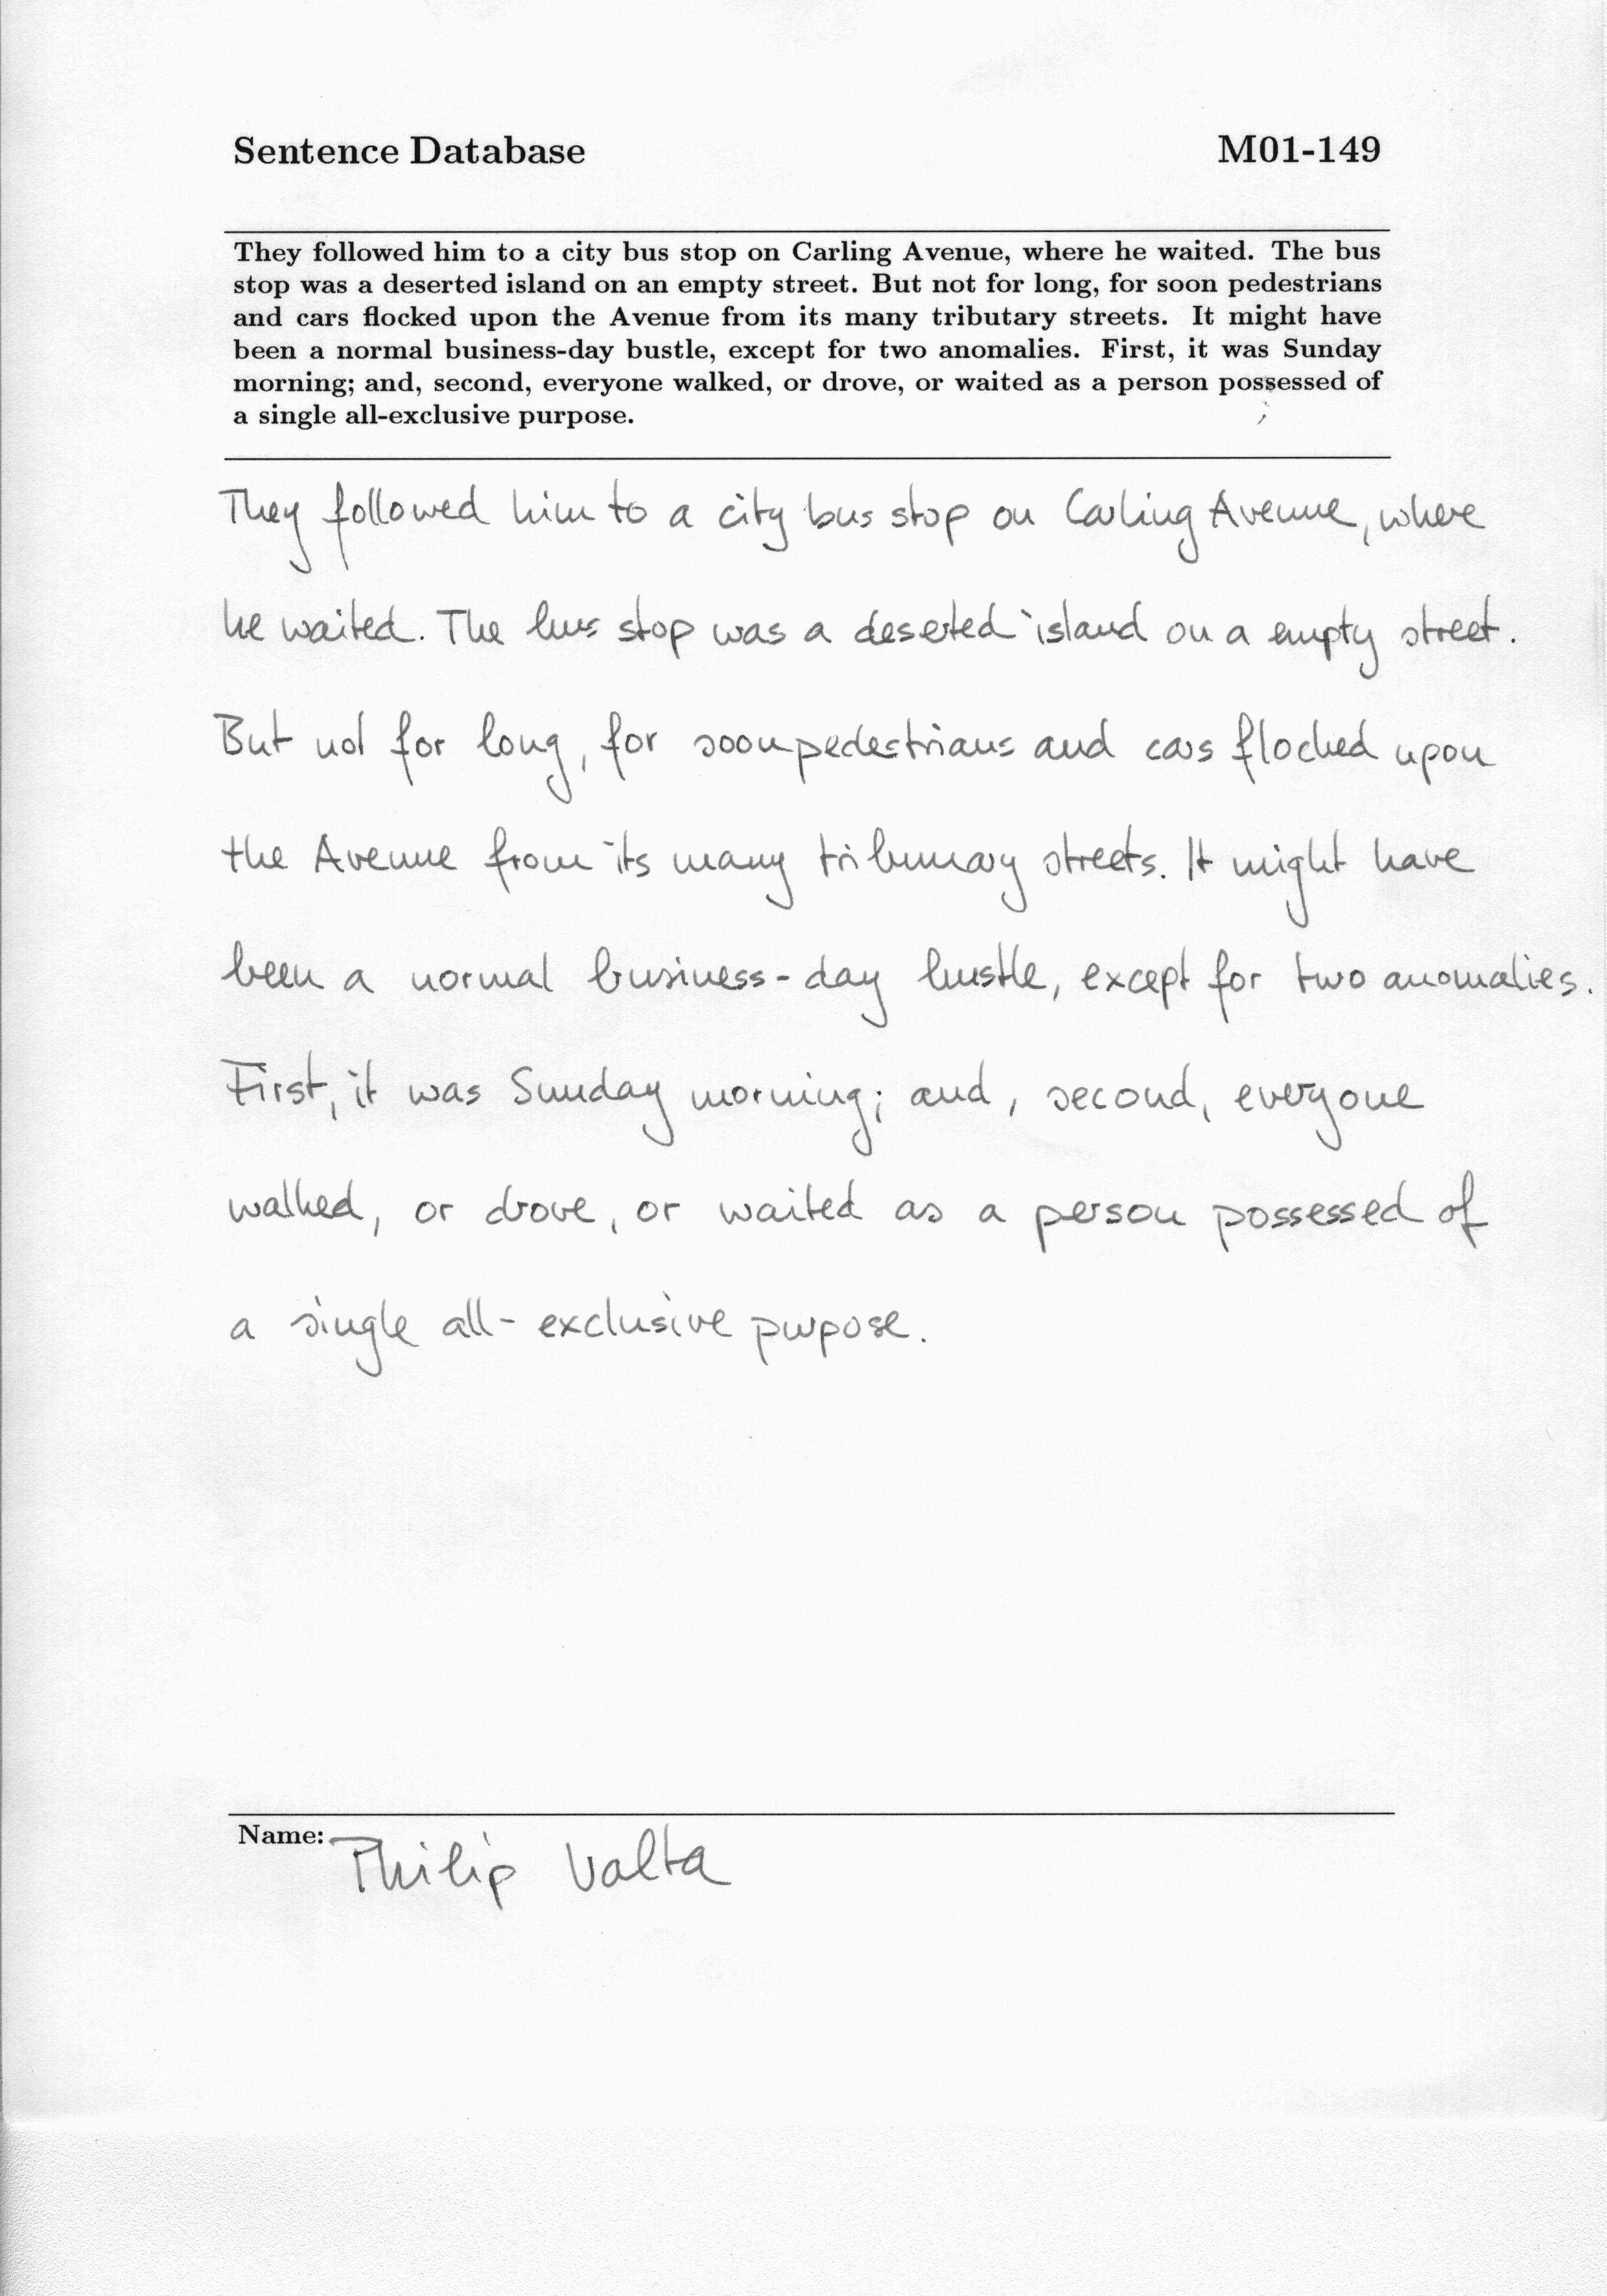 Sentence Database M01-149
They followed him to a city bus stop on Carling Avenue, where he waited. The bus
stop was a deserted island on an empty street. But not for long, for soon pedestrians
and cars flocked upon the Avenue from its many tributary streets. It might have
been a normal business-day bustle, except for two anomalies. First, it was Sunday
morning; and, second, everyone walked, or drove, or waited as a person possessed of
a single all-exclusive purpose.
They followed him to a city bus stop on Carling Avenue, where
he waited. The bus stop was a deserted island on a empty street.
But not for long, for soon pedestrians and cars flocked upon
the Avenue from its many tribunary streets. It might have
been a normal business-day bustle, except for two anomalies.
First, it was Sunday morning; and, second, everyone
walked, or drove, or waited as a person possessed of
a single all-exclusive purpose.
Name: Philip Valta